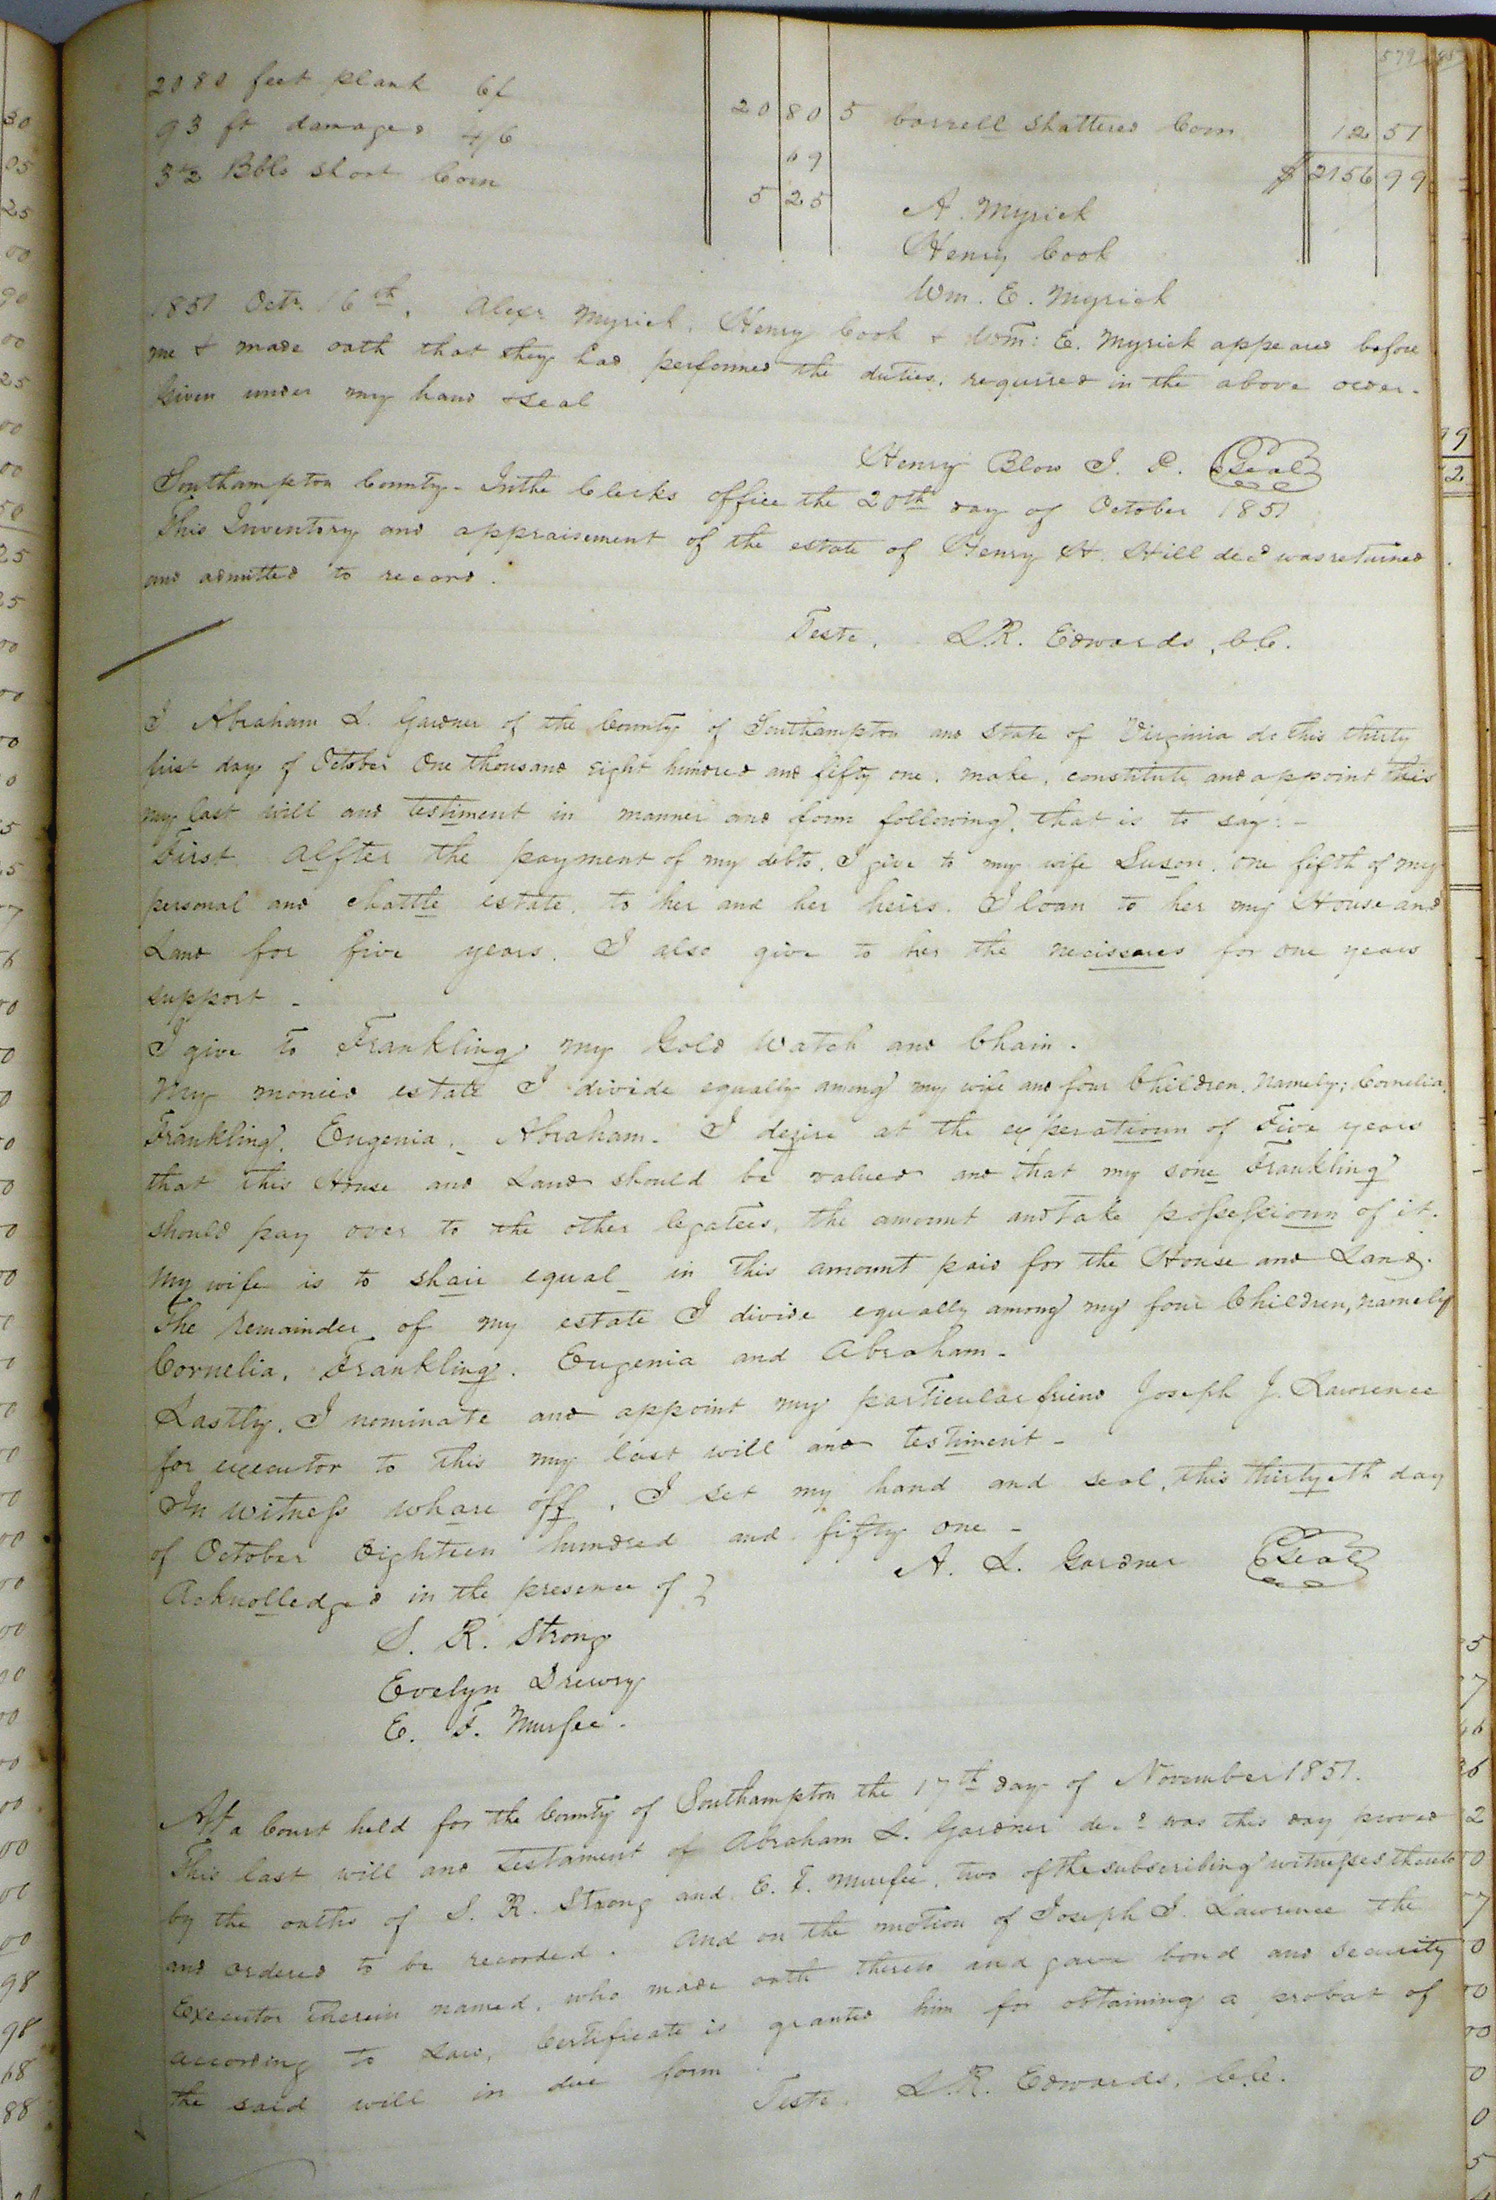 579
2080 feet plank 6/ 20 80
93 ft damaged 4/6 69
3 1/2 Bbls short Corn 5 25
5 barrell shattered Corn 12 51
$ 2156 99
A. Myrick
Henry Cook
Wm. E. Myrick
1851 Octr. 16th. Alexr Myrick, Henry Cook & Wm: E. Myrick appeared before
me & made oath that they had performed the duties, required in the above order.
Given under my hand & seal
Henry Blow J. P. Seal
Southampton County - In the Clerks office the 20th day of October 1851
This Inventory and appraisement of the estate of Henry H. Hill decd was returned
and admitted to record.
Teste, L.R. Edwards, C.C.
I Abraham L. Gardner of the County of Southampton and State of Virginia do this thirty
first day of October One thousand eight hundred and fifty one, make, constitute and appoint this
my last will and testiment in manner and form following, that is to say: -
First. Alfter the payment of my debts, I give to my wife Suson, one fifth of my
personal and chattle estate, to her and her heirs. I loan to her my House and
Land for five years. I also give to her the necissares for one years
support -
I give to Frankling my Gold Watch and Chain.
My monied estate I divide equally among my wife and four Children, Namely; Cornelia,
Frankling, Eugenia, Abraham. I dezire at the experatioun of Five years
that this House and Land should be valued and that my sone Frankling
should pay over to the other legatees, the amount and take possessioun of it.
My wife is to shair equal in this amount paid for the House and Land.
The remainder of my estate I divide equally among my four Children, namely
Cornelia, Frankling, Eugenia and Abraham -
Lastly, I nominate and appoint my particular friend Joseph J. Lawrence
for executor to this my last will and testiment -
In witness whare off, I set my hand and seal, this thirtyeth day
of October Eighteen hundred and fifty one -
A. L. Gardner Seal
Acknolledged in the presence of }
S. R. Strong
Evelyn Drewry
E. F. Murfee.
At a Court held for the County of Southampton the 17th day of November 1851.
This last will and testament of Abraham L. Gardner decd was this day proved
by the oaths of S. R. Strong and E. F. Murfee, two of the subscribing witnesses thereto
and ordered to be recorded. And on the motion of Joseph J. Lawrence the
Executor therein named, who made oath thereto and gave bond and security
according to Law, Certificate is granted him for obtaining a probat of
the said will in due form
Teste L.R. Edwards, C.C.